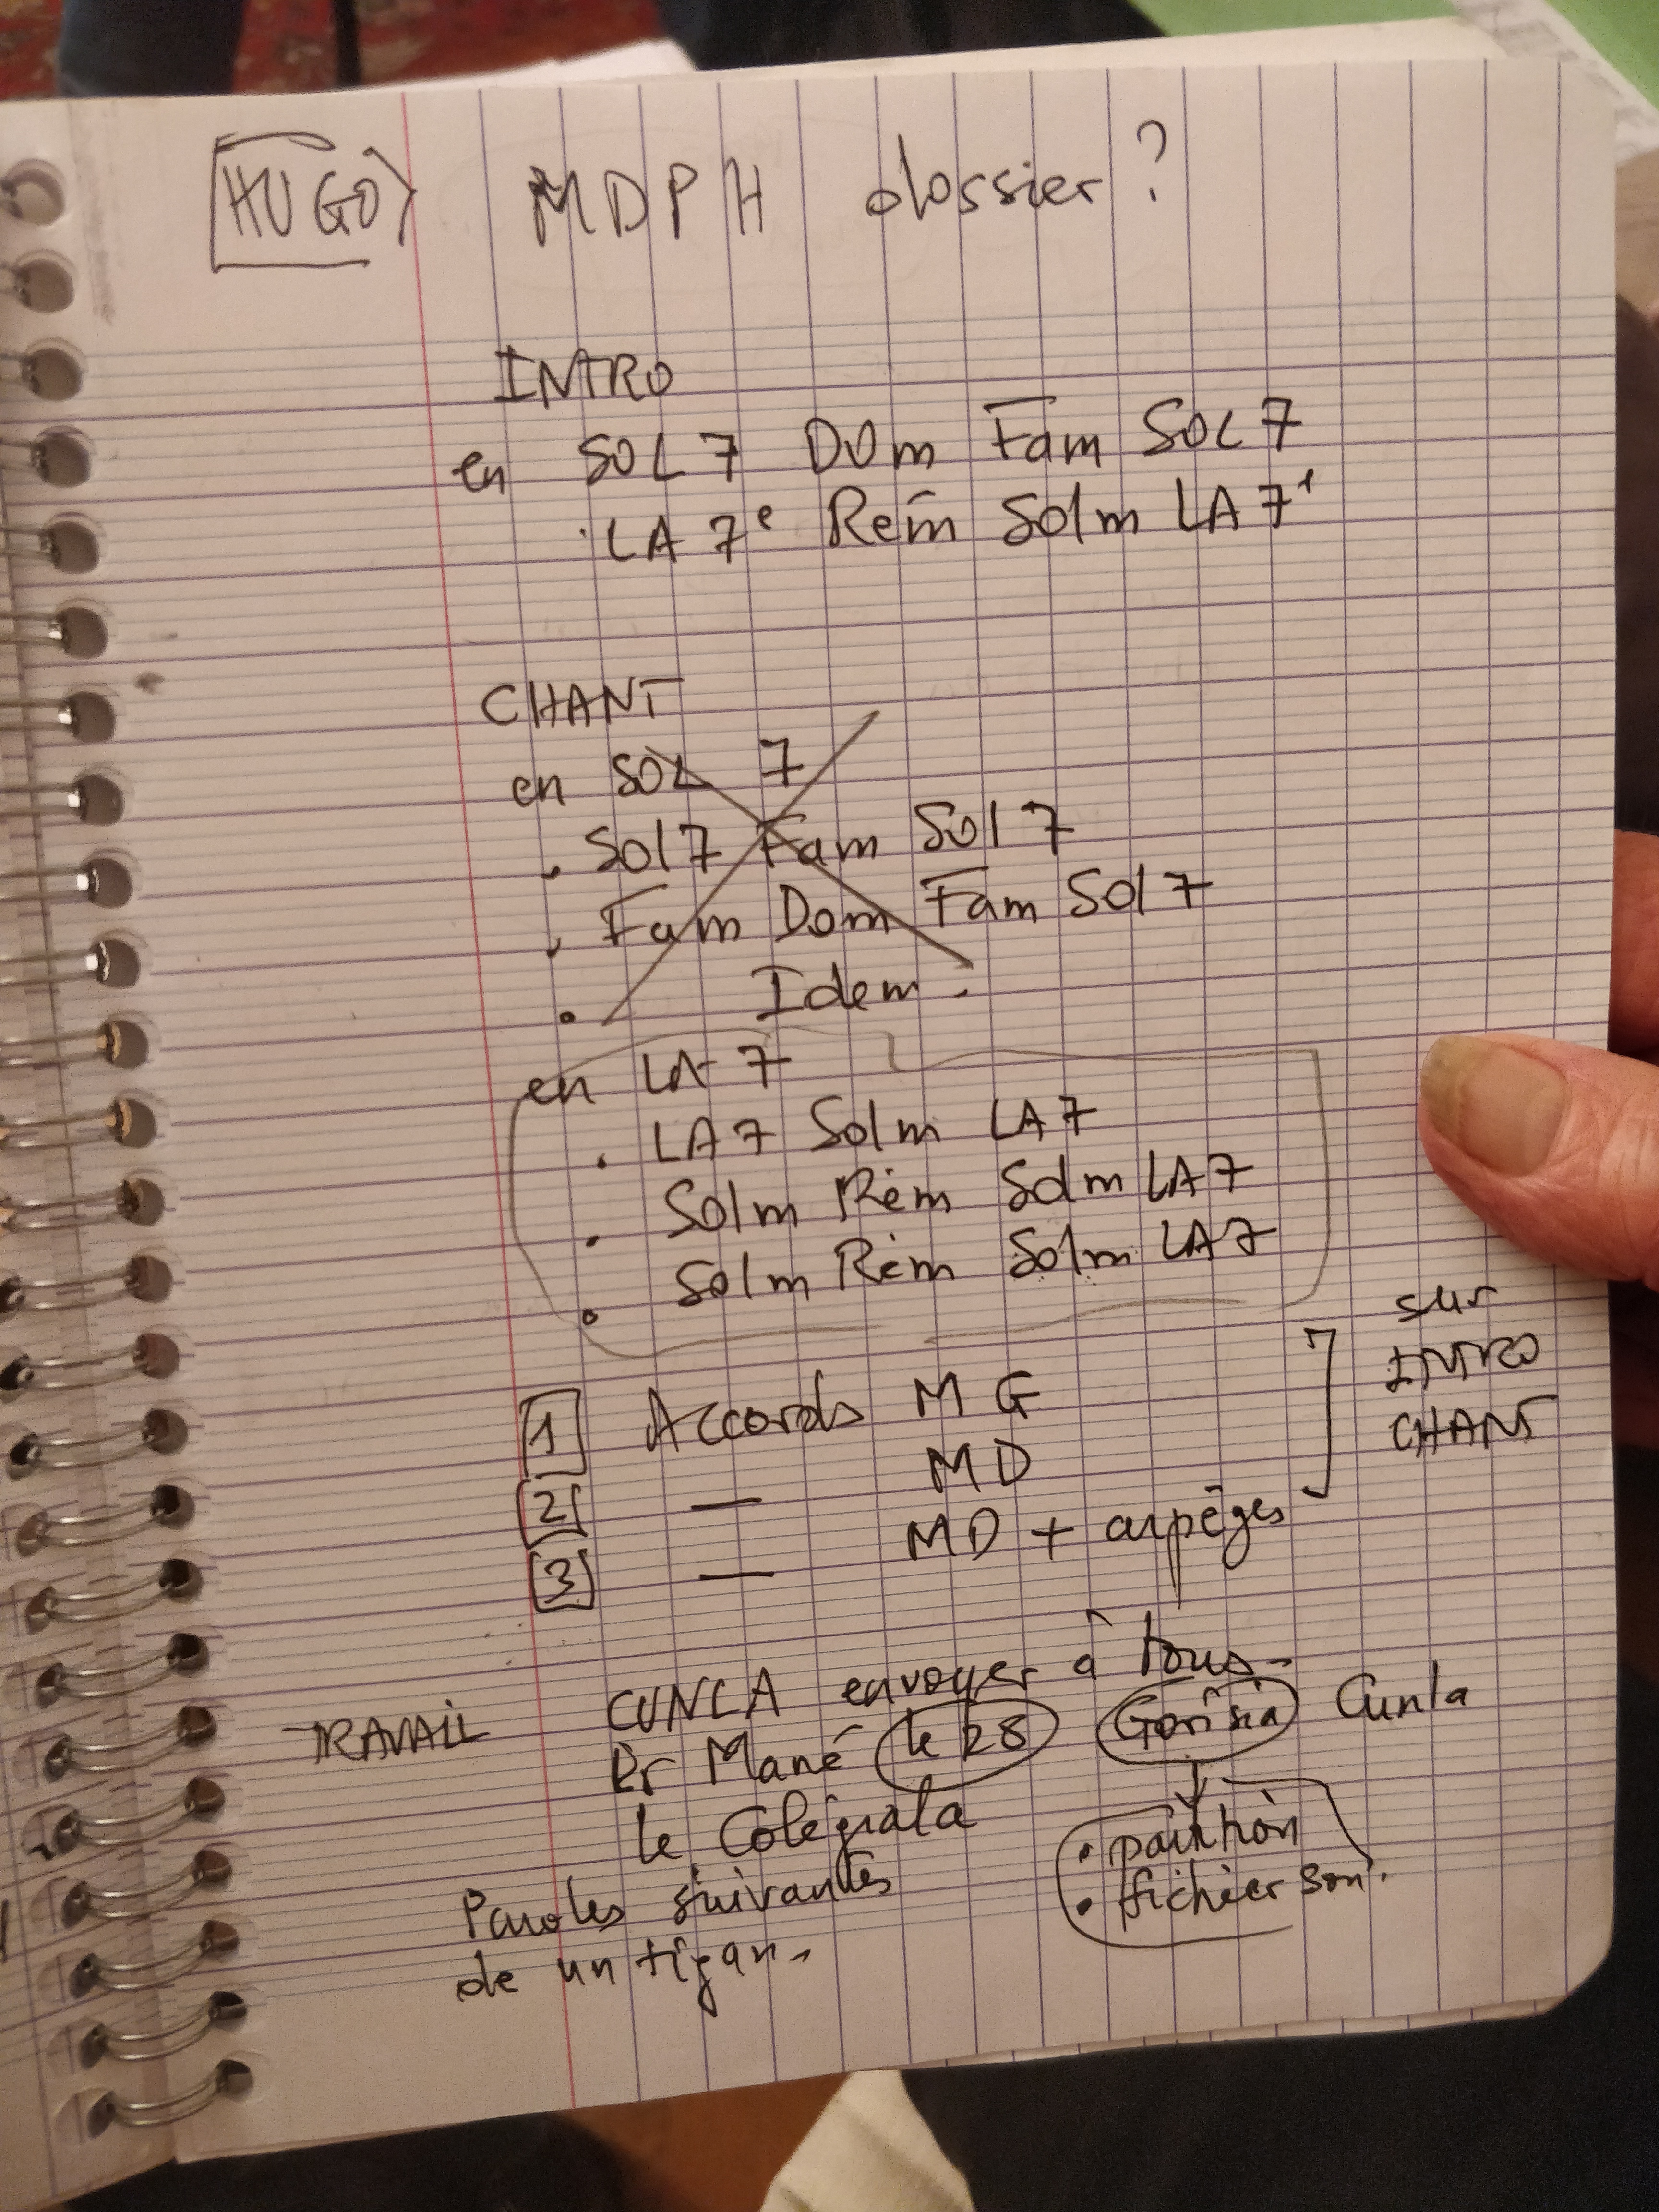 HUGO MDPH dossier ?
INTRO
en SOL 7 DOm Fam SOL 7
LA 7e Rem Solm LA 7
CHANT
en SOL 7
. Sol 7 Fam Sol 7
. Fam Dom Fam Sol 7
. Idem .
en LA 7
. LA 7 Solm LA 7
. Solm Rém Solm LA 7
. Solm Rém Solm LA 7
1 Accords M G
2 — MD
3 — MD + arpêges
sur
INTRO
CHANT
TRAVAIL
CUNLA envoyer à tous -
Pr Mané le 28
le Colegiala
Paroles suivantes
de un tigan
Cunla
• partition
• fichier son.